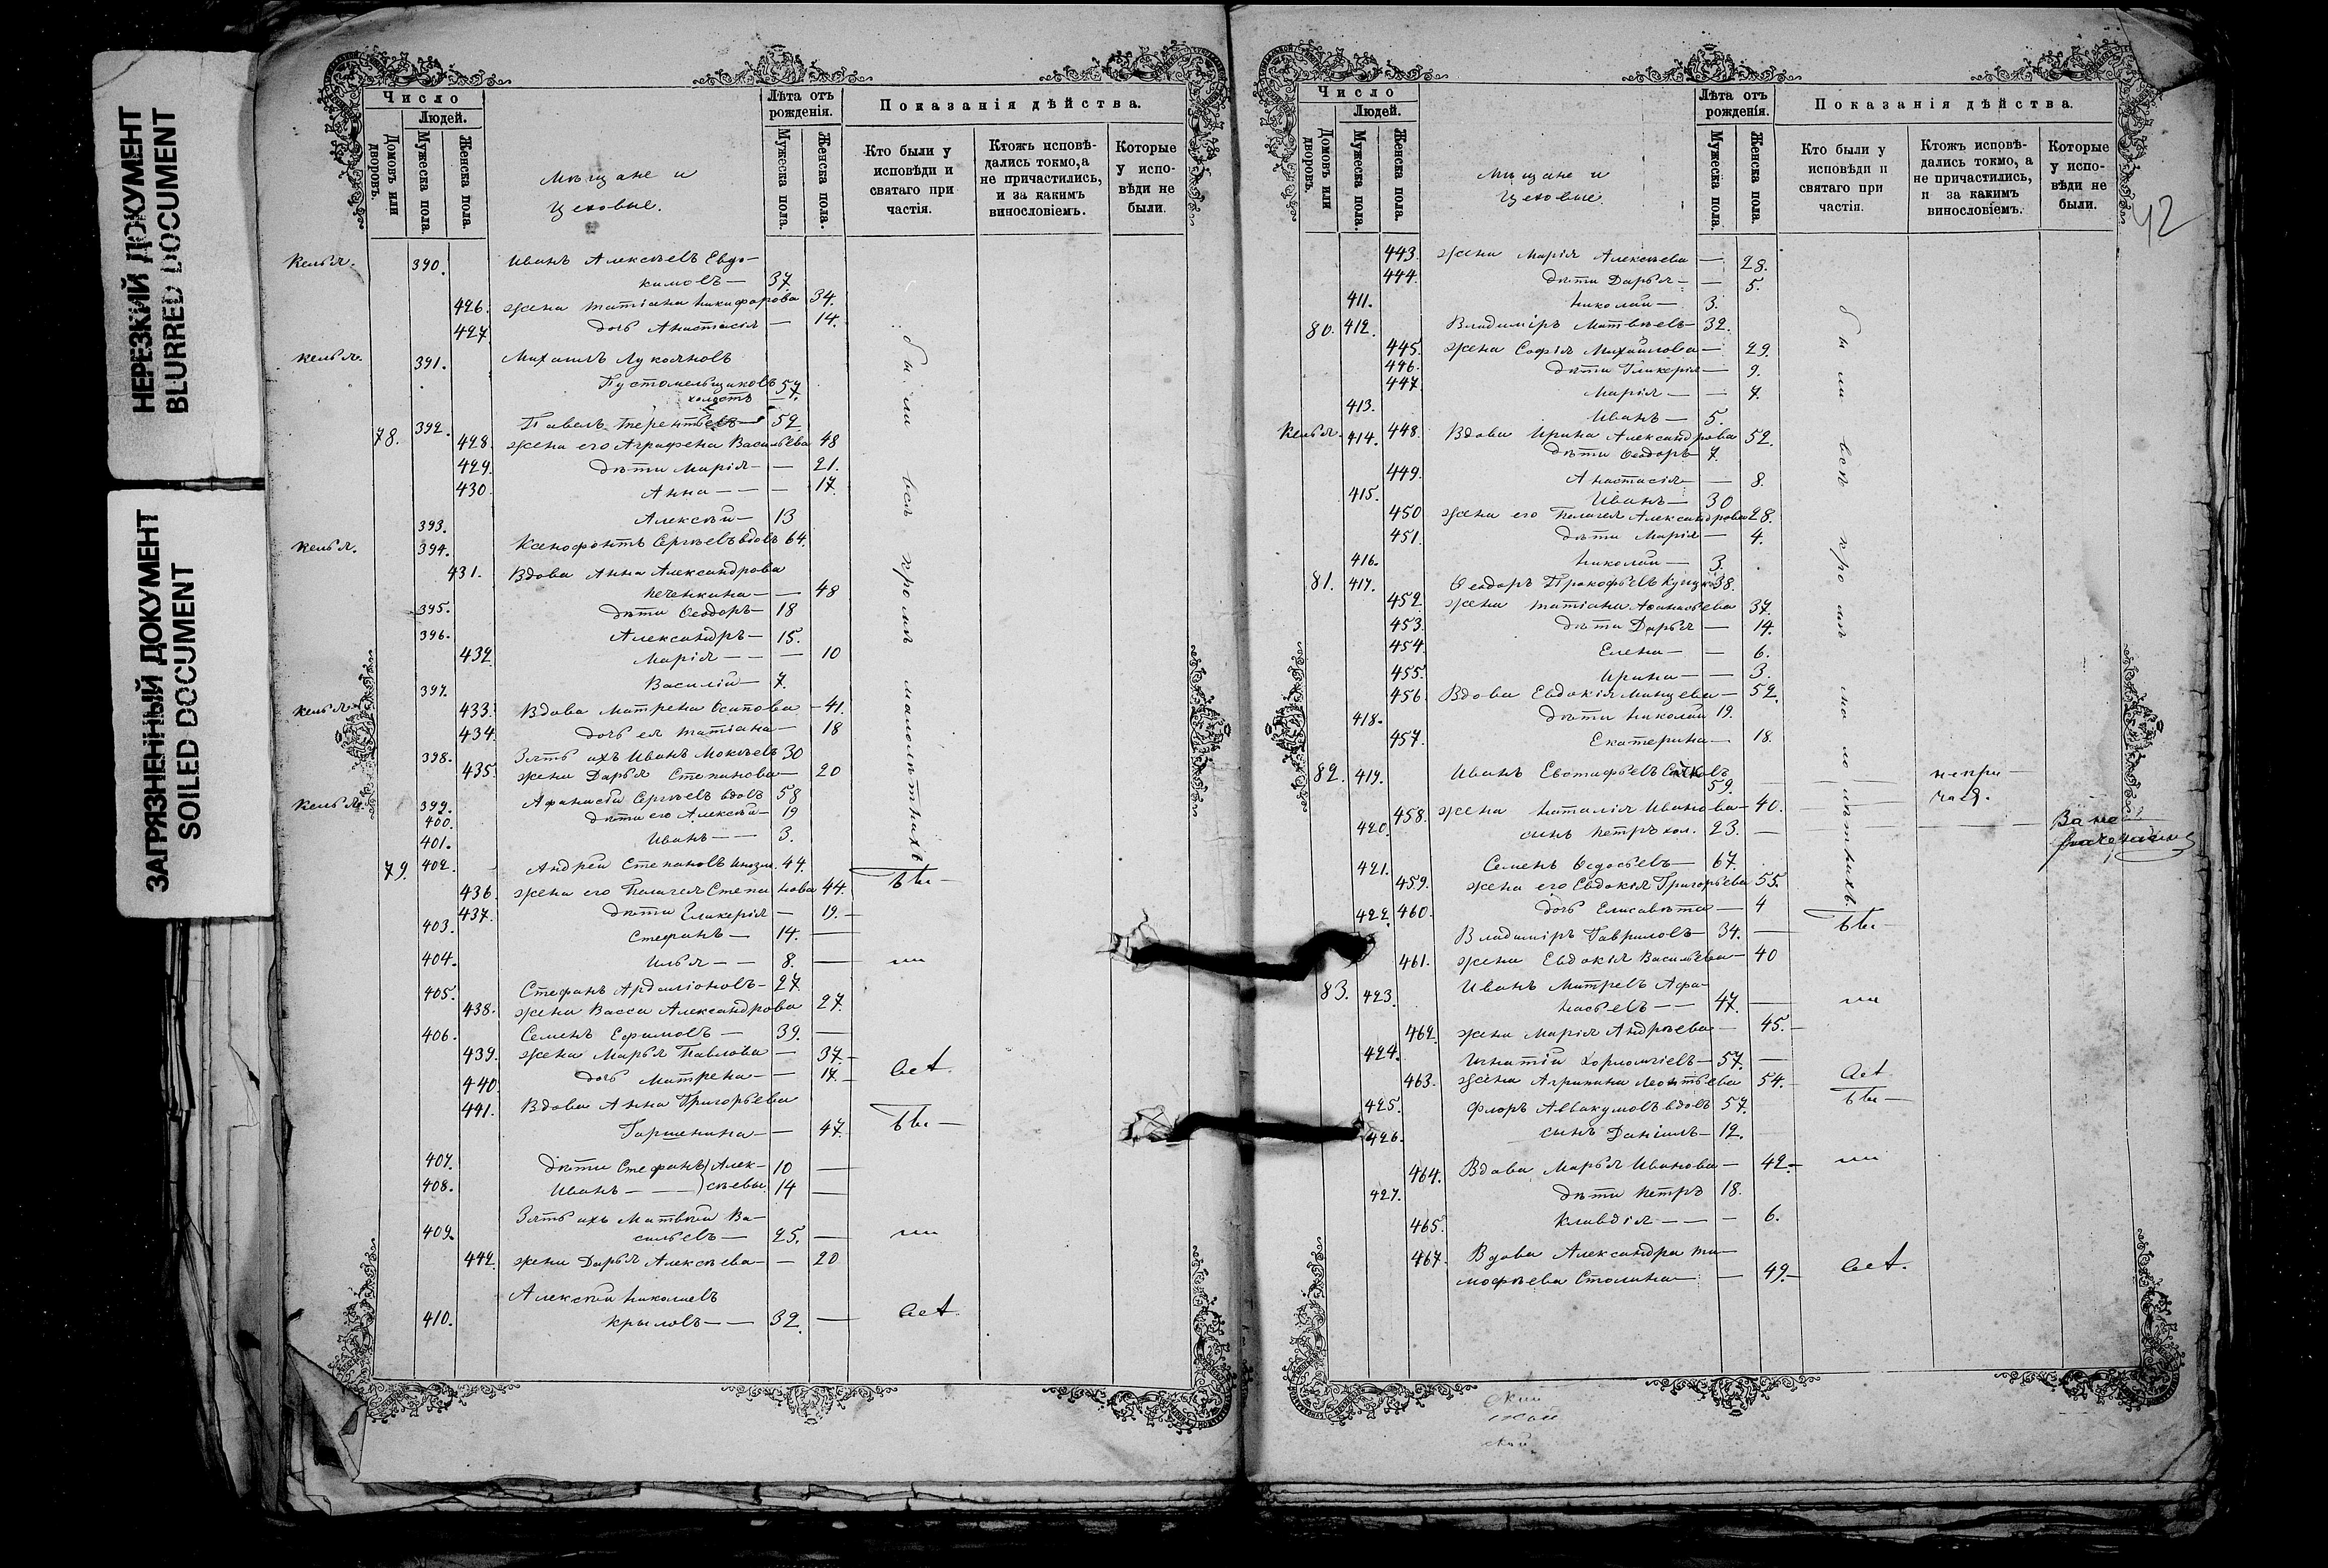 НЕРЕЗКИЙ ДОКУМЕНТ
BLURRED DOCUMENT
ЗАГРЯЗНЕННЫЙ ДОКУМЕНТ
SOILED DOCUMENT
Число
Людей.
Домовъ или дворовъ.
Мужеска пола.
Женска пола.
Мѣщане и
Цеховые.
Лѣта отъ рожденія.
Мужеска пола.
Женска пола.
Показанія дѣйства.
Кто были у исповѣди и святаго при частія.
Ктожъ исповѣ-дались токмо, а не причастились, и за какимъ винословіемъ.
Которые у испо-вѣди не были.
Келья. 390. Иванъ Алексѣевъ Евдо-
кимовъ — 37.
426. жена Татіана Никифорова 34.
427. дочь Анастасія — 14.
Келья. 391. Михаилъ Лукояновъ
Пустомельщиковъ 57.
холостъ
78. 392. Павелъ Терентьевъ — 52
428. жена его Аграфена Васильева 48
429. дѣти Марія — 21.
430. Анна — — 17.
393. Алексѣй — 13
Келья. 394. Ксенофонтъ Сергѣевъ вдовъ 64.
431. Вдова Анна Александрова
Печенкина — — 48
395. дѣти Ѳеодоръ — 18
396. Александръ — 15.
432. Марія — — — 10
397. Василій — 7.
Келья. 433. Вдова Матрена Осипова — 41.
434. дочь ея Татіана — 18
398. Зять ихъ Иванъ Мокѣевъ 30
435. жена Дарья Степанова — 20
Келья. 399. Аѳанасій Сергѣевъ вдовъ 58
400. дѣти его Алексѣй — 19
401. Иванъ — — 3.
были всѣ кромѣ малолѣтнихъ
79. 402. Андрей Степановъ 44.
436. жена его Пелагея Степанова 44.
437. дѣти Гликерія — 19. —
403. Стефанъ — 14. —
404. Илья — — 8. —
405. Стефанъ Ардаліоновъ — 27
438. жена Васса Александрова 27.
406. Семенъ Ефимовъ — 39. —
439. жена Марья Павлова — 37. —
440. дочь Матрена — — 17. —
441. Вдова Анна Григорьева
Гаршенина — — 47.
407. дѣти Стефанъ) Алек- 10 —
408. Иванъ — —) сѣевы. 14 —
409. Зять ихъ Матвѣй Ва-
сильевъ — 25. —
442. жена Дарья Алексѣева — — 20
Алексѣй Николаевъ
410. Крыловъ — — 32. —
бы-
ли
всѣ.
бы-
ли
всѣ.
Число
Людей.
Домовъ или дворовъ.
Мужеска пола.
Женска пола.
Мѣщане и
Цеховые.
Лѣта отъ рожденія.
Мужеска пола.
Женска пола.
Показанія дѣйства.
Кто были у исповѣди и святаго при частія.
Ктожъ исповѣ-дались токмо, а не причастились, и за какимъ винословіемъ.
Которые у испо-вѣди не были.
42
443. жена Марія Алексѣева — 28.
444. дѣти Дарья — — 5.
411. Николай — 3.
80. 412. Владиміръ Матвѣевъ — 32.
445. жена Софія Михайлова — 29.
446. дѣти Гликерія — 9.
447. Марія — — 7.
413. Иванъ — 5.
Келья. 414. 448. Вдова Ирина Александрова 52.
дѣти Ѳеодоръ 7.
449. Анастасія — 8.
415. Иванъ — 30
450. жена его Пелагея Александрова 28.
451. дѣти Марія — 4.
416. Николай — 3.
81. 417. Ѳеодоръ Прокофьевъ 38.
452. жена Татіана Аѳанасьева 37.
453. дѣти Дарья — 14.
454. Елена — — 6.
455. Ирина — — 3.
456. Вдова Евдокія — 52.
418. дѣти Николай 19.
457. Екатерина — 18.
82. 419. Иванъ Евстафьевъ
59.
458. жена Наталія Иванова — 40.
420. сынъ Петръ хол. 23. —
421. Семенъ Ѳедосѣевъ — 67.
459. жена его Евдокія Григорьева 55.
422. 460. дочь Елисавета — 4
Владиміръ Гавриловъ — 34. —
461. жена Евдокія Васильева — 40
83. 423. Иванъ Аѳа-
насьевъ — — 47. —
462. жена Марія Андреева — 45. —
424. Игнатій — 57. —
463. жена Агрипина Леонтьева 54. —
425. Флоръ Аввакумовъ вдовъ 57.
426. сынъ Даніилъ — 12.
464. Вдова Марья Иванова — 42. —
427. дѣти Петръ 18.
465. Клавдія — — — 6.
467. Вдова Александра Ти-
мофѣева Столина — — 49. —
были всѣ кромѣ малолѣтнихъ.
непри-
част.
За не
бы-
ли
всѣ
бы-
ли
всѣ.